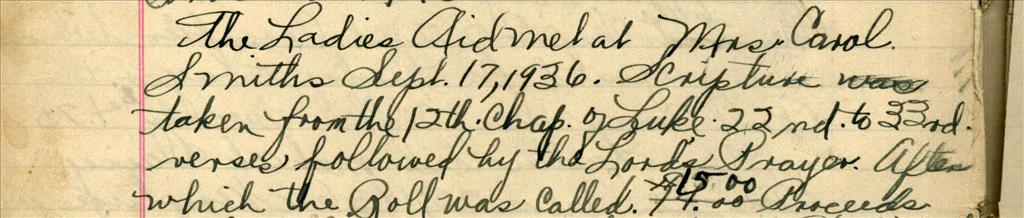 The Ladies Aid met at Mrs. Carol.
Smiths Sept. 17, 1936. Scripture was
taken from the 12th. Chap. of Luke. 22nd. to 33rd.
verses followed by the Lords Prayer. After
which the Roll was called. 15.00 Proceeds